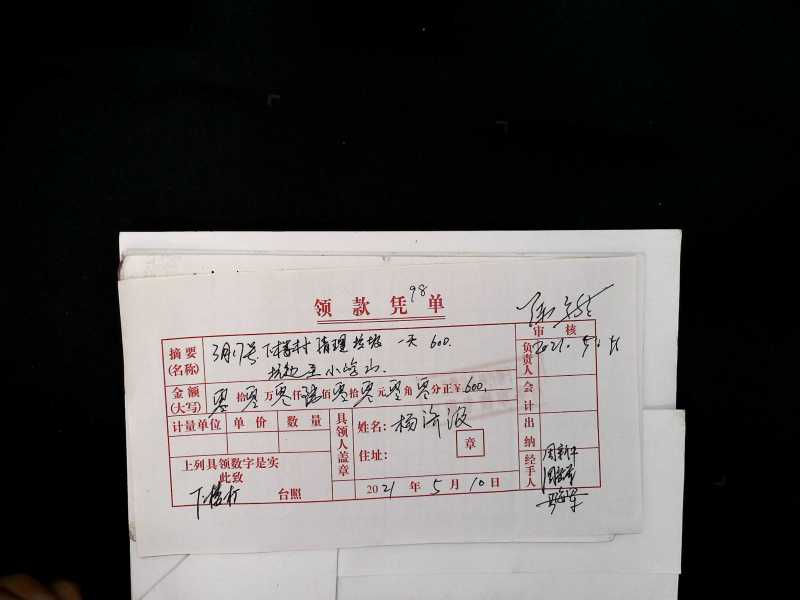 98
领款凭单
摘要
(名称)
3月17号.下楼村 清理垃圾 一天 600.
金额
(大写)
零拾零万零仟陆佰零拾零元零角零分正¥600.
计量单位 单价 数量
上列具领数字是实
此致
下楼村 台照
具领人盖章
姓名:杨济波
住址:
章
2021年5月10日
审核
负责人
2021.5.
会计
出纳
经手人
周新平